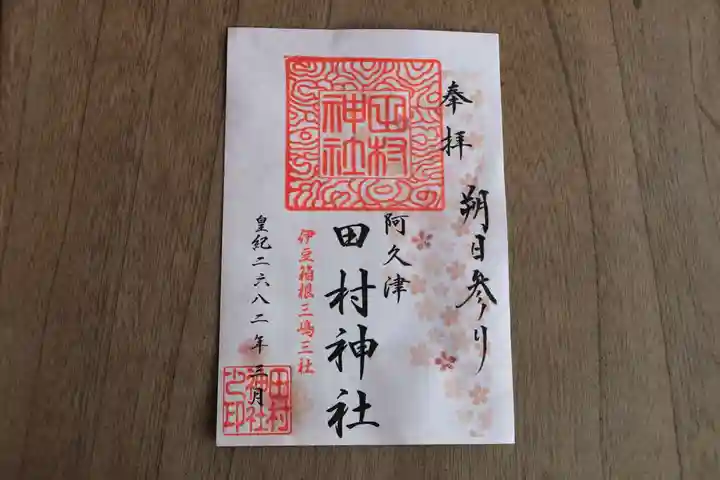 奉拝
朔日参り
田村
神社
阿久津
田村神社
伊豆箱根三嶋三社
皇紀二六八二年三月
田村
神社
之印